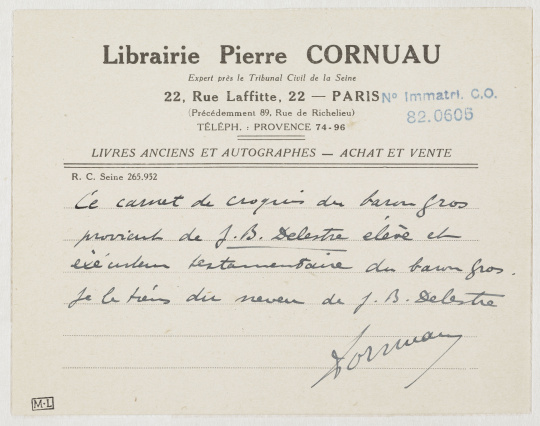 Librairie Pierre CORNUAU
Expert près le Tribunal Civil de la Seine
22, Rue Laffitte, 22 — PARIS
Nº Immatri. C.O.
82.0606
(Précédemment 89, Rue de Richelieu)
TÉLÉPH. : PROVENCE 74-96
LIVRES ANCIENS ET AUTOGRAPHES — ACHAT ET VENTE
R. C. Seine 265.952
Ce carnet de croquis du baron Gros
provient de J. B. Delestre élève et
exécuteur testamentaire du baron Gros.
Je le tiens du neveu de J. B. Delestre
Cornuau
M.L